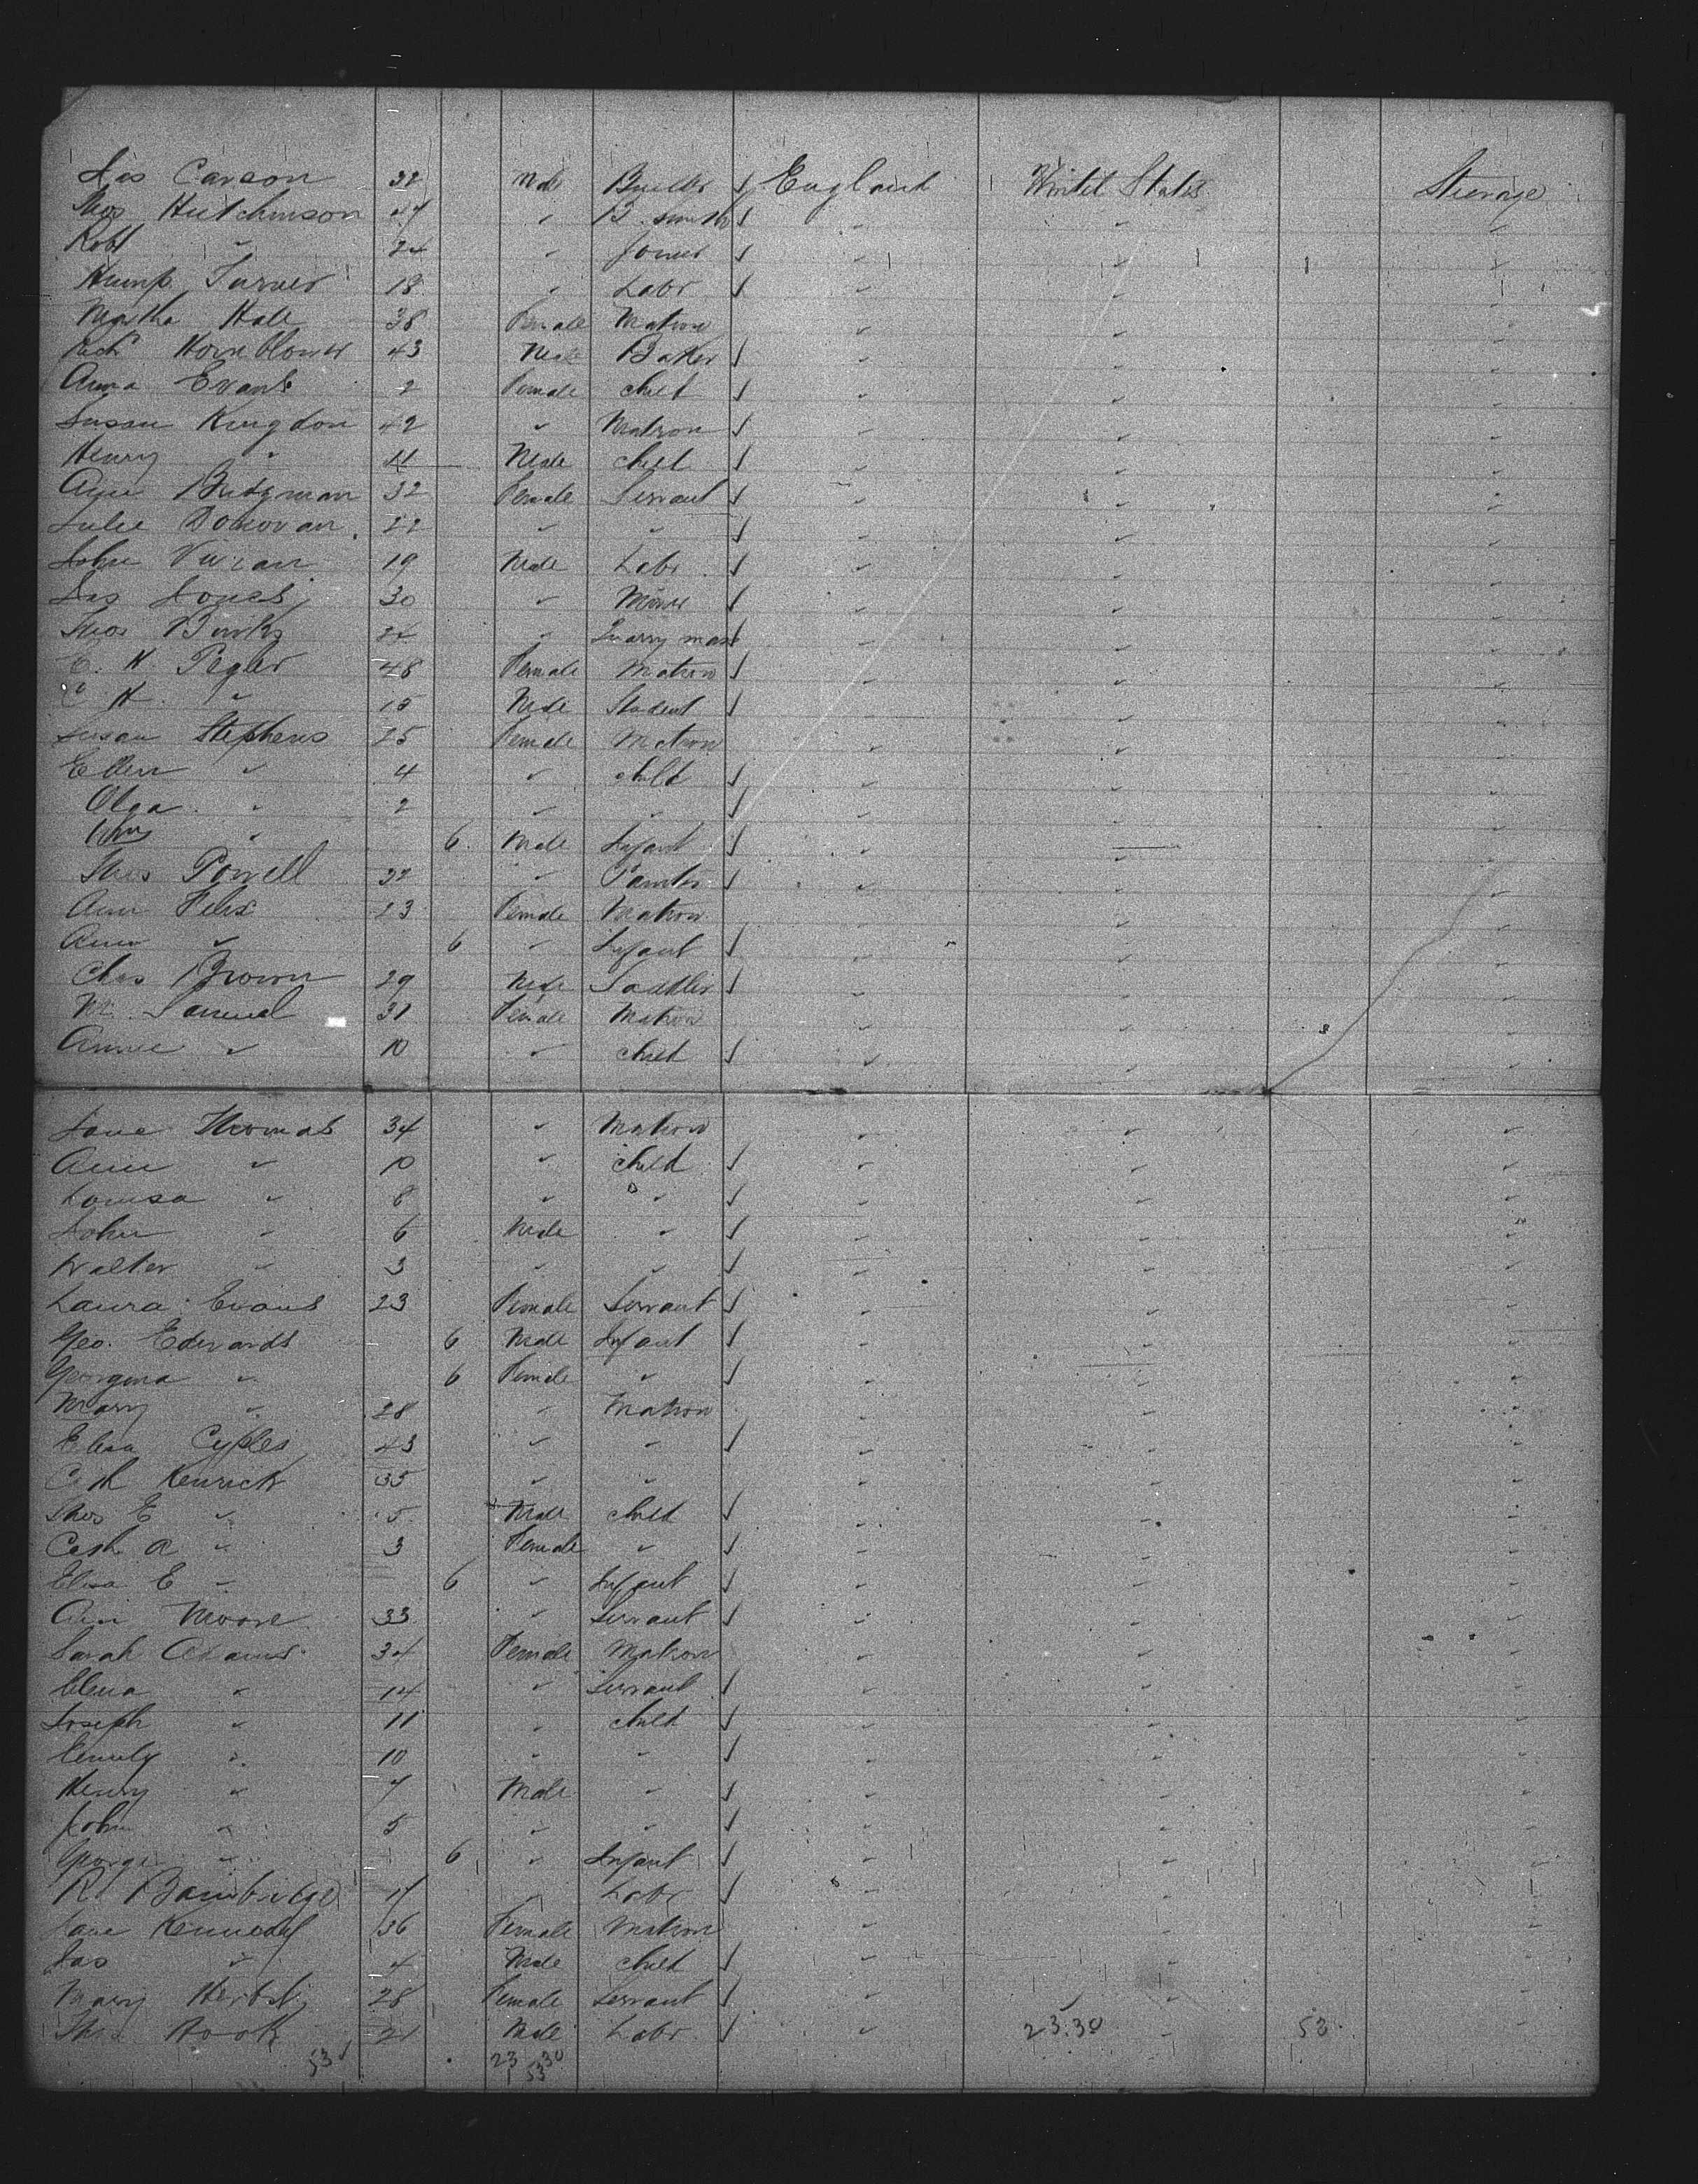 Jas Carson 32 Male Butler √ England United States Steerage
Thos Hutchinson 47 " B. smith √ " " "
Robt " 24 " Joiner √ " " "
Hump Turner 18 " Labr √ " " "
Martha Hall 38 Female Matron " " "
Rich Hornblower 43 Male Baker √ " " "
Anna Evans 2 Female child √ " " "
Susan Kingdon 42 " Matron √ " " "
Henry " 11 Male child √ " " "
Ann Bridgman 32 Female Servant √ " " "
Julie Donovan 22 " " √ " " "
John Vivian 19 Male Labr √ " " "
Jas Jones 30 " Miner √ " " "
Thos Binks 24 " Quarry man √ " " "
E. H. Pegler 48 Female Matron √ " " "
C H. " 15 Male Student √ " " "
Susan Stephens 25 Female Matron " " "
Ellen " 4 " child √ " " "
Olga " 2 " " √ " " "
" 6 Male Infant √ " " "
Thos Powell 32 " Painter √ " " "
Ann Felix 23 Female Matron " " "
Ann " 6 " Infant √ " " "
Chas Brown 29 Male Saddler √ " " "
M. Samuel 31 Female Matron " " "
Annie " 10 " child √ " " "
Jane Thomas 34 " Matron " " "
Ann " 10 " child √ " " "
Louisa " 8 " " √ " " "
John " 6 Male " √ " " "
Walter " 3 " " √ " " "
Laura Evans 23 Female Servant √ " " "
Geo. Edwards 6 Male Infant √ " " "
Georgina " 6 Female " √ " " "
Mary " 28 " Matron " " "
Eliza Cyples 43 " " √ " " "
Cath Kenrick 35 " " " " "
Thos E " 5 Male child √ " " "
Cath A " 3 Female " √ " " "
Eliza E " 6 " Infant √ " " "
Ann Moore 33 " Servant √ " " "
Sarah Adams 34 Female Matron " " "
Elena " 14 " Servant √ " " "
Joseph " 11 " child √ " " "
Emily " 10 " " √ " " "
Henry " 7 Male " √ " " "
John " 5 " " √ " " "
George " 6 " Infant √ " " "
Rd Bambridge 17 " Labr √ " " "
Jane Kennedy 36 Female Matron " " "
Jas " 4 Male child √ " " "
Mary 28 Female Servant √ " " "
Thos Rook 21 Male Labr √ " 23.30 53 "
53 23 30
53